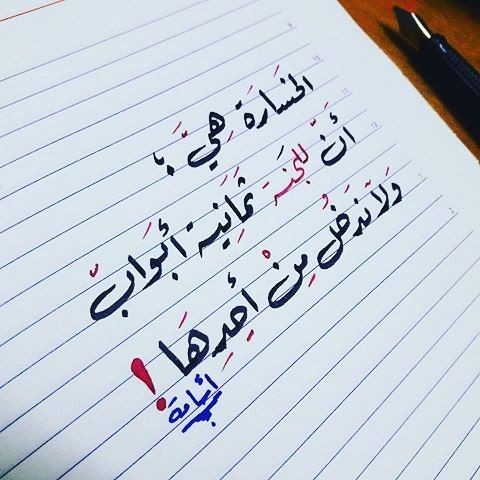 الخسَارَة هِيَ :
أنَّ للجنَة ثمَانِيَة أبوَاب
وَلَا نَدخُل مِنْ أحِدِهَا !
أسامة